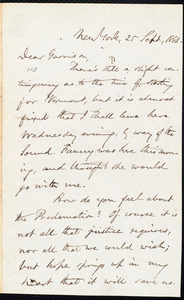 New York, 25 Sept., 1862.
Dear Garrison,
There's still a slight con-
tingency as to the time of starting
for Vermont, but it is almost
fixed that I shall leave here
Wednesday evening, by way of the
Sound. Fanny was here this morn-
ing, and thought she would
go with me.
How do you feel about
the Proclamation? Of course it is
not all that justice requires,
nor all that we could wish;
but hope springs up in my
heart that it will save us.